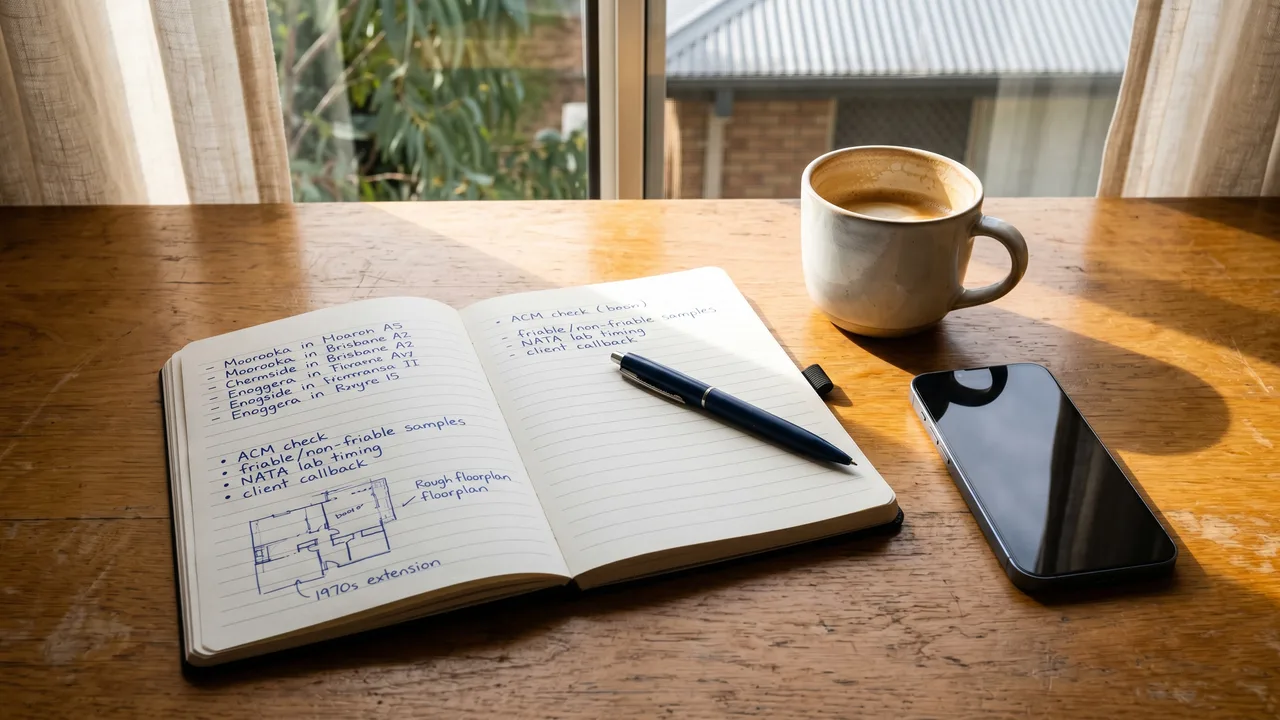 - Moorooka in Hoaron A5
- Moorooka in Brisbane A2
- Chermside in Brisbane A2
- Enoggera in
- Enogside in
- Enoggera in 15
• ACM check
• friable/non-friable samples
• NATA lab timing
• client callback
Rough floorplan
floorplan
1970s extension
• ACM check
- friable/non-friable samples
- NATA lab timing
- client callback